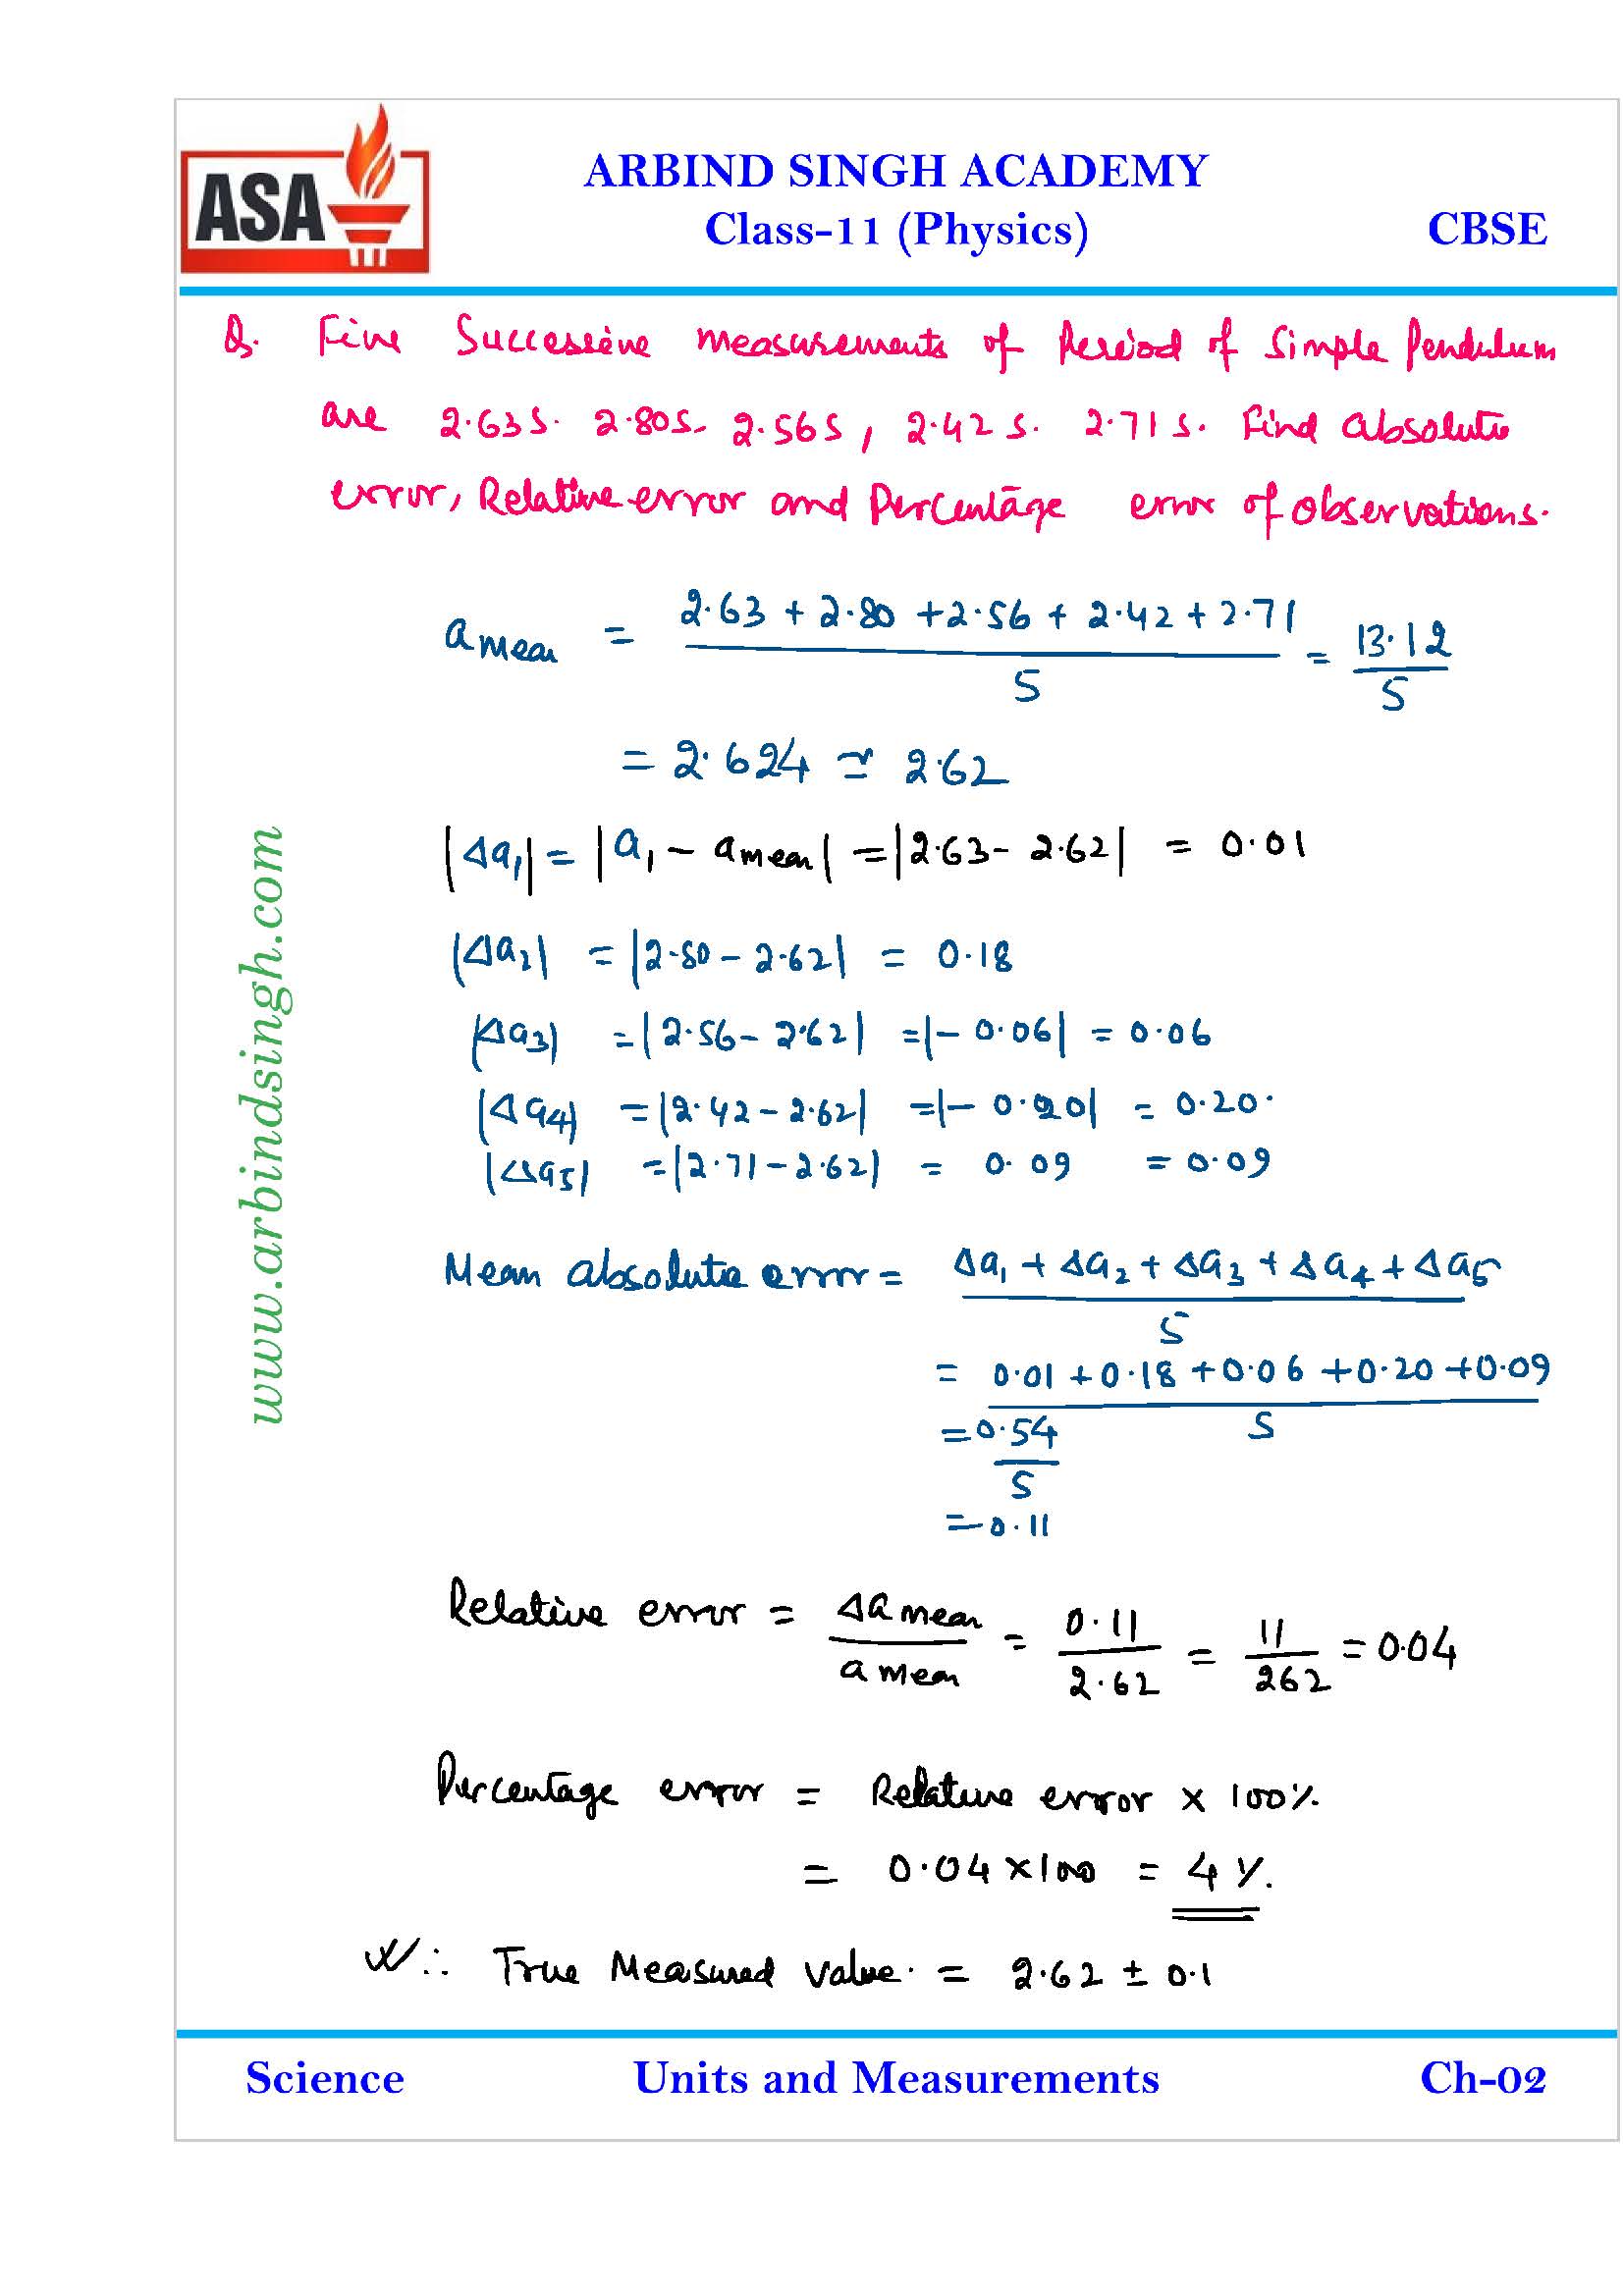 ASA
ARBIND SINGH ACADEMY
Class-11 (Physics) CBSE
Q. Five Successive measurements of Period of Simple Pendulum
are 2.63 s. 2.80 s. 2.56 s, 2.42 s. 2.71 s. Find absolute
error, Relative error and Percentage error of observations.
a mean = 2.63 + 2.80 + 2.56 + 2.42 + 2.71 / 5 = 13.12 / 5
= 2.624 ≃ 2.62
|Δa₁| = |a₁ - a mean| = |2.63 - 2.62| = 0.01
|Δa₂| = |2.80 - 2.62| = 0.18
|Δa₃| = |2.56 - 2.62| = |- 0.06| = 0.06
|Δa₄| = |2.42 - 2.62| = |- 0.20| = 0.20
|Δa₅| = |2.71 - 2.62| = 0.09 = 0.09
Mean absolute error = Δa₁ + Δa₂ + Δa₃ + Δa₄ + Δa₅ / 5
= 0.01 + 0.18 + 0.06 + 0.20 + 0.09 / 5
= 0.54 / 5
= 0.11
Relative error = Δa mean / a mean = 0.11 / 2.62 = 11 / 262 = 0.04
Percentage error = Relative error x 100%
= 0.04 x 100 = 4%.
∴ True Measured value. = 2.62 ± 0.1
www.arbindsingh.com
Science Units and Measurements Ch-02